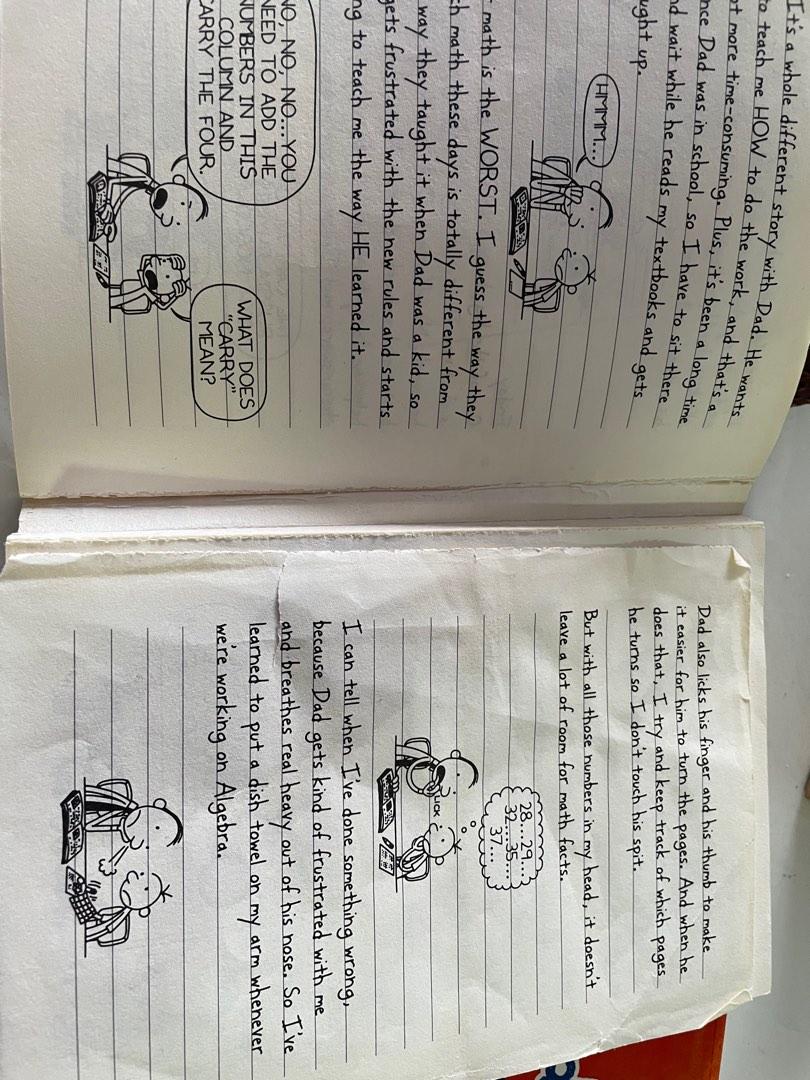 It's a whole different story with Dad. He wants
to teach me HOW to do the work, and that's a
more time-consuming. Plus, it's been a long time
Dad was in school, so I have to sit there
wait while he reads my textbooks and gets
up.
HMMM...
math is the WORST. I guess the way they
math these days is totally different from
way they taught it when Dad was a kid, so
gets frustrated with the new rules and starts
to teach me the way HE learned it.
NO, NO, NO...YOU
NEED TO ADD THE
NUMBERS IN THIS
COLUMN AND
CARRY THE FOUR.
WHAT DOES
"CARRY"
MEAN?
Dad also licks his finger and his thumb to make
it easier for him to turn the pages. And when he
does that, I try and keep track of which pages
he turns so I don't touch his spit.
But with all those numbers in my head, it doesn't
leave a lot of room for math facts.
28...29...
32....35....
37...
LICK
I can tell when I've done something wrong,
because Dad gets kind of frustrated with me
and breathes real heavy out of his nose. So I've
learned to put a dish towel on my arm whenever
we're working on Algebra.